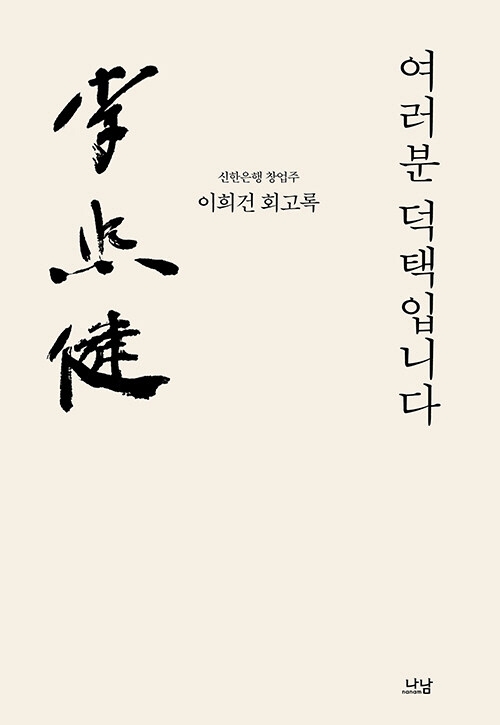 여러분 덕택입니다
신한은행 창업주
이희건 회고록
李熙健
나남
nanam